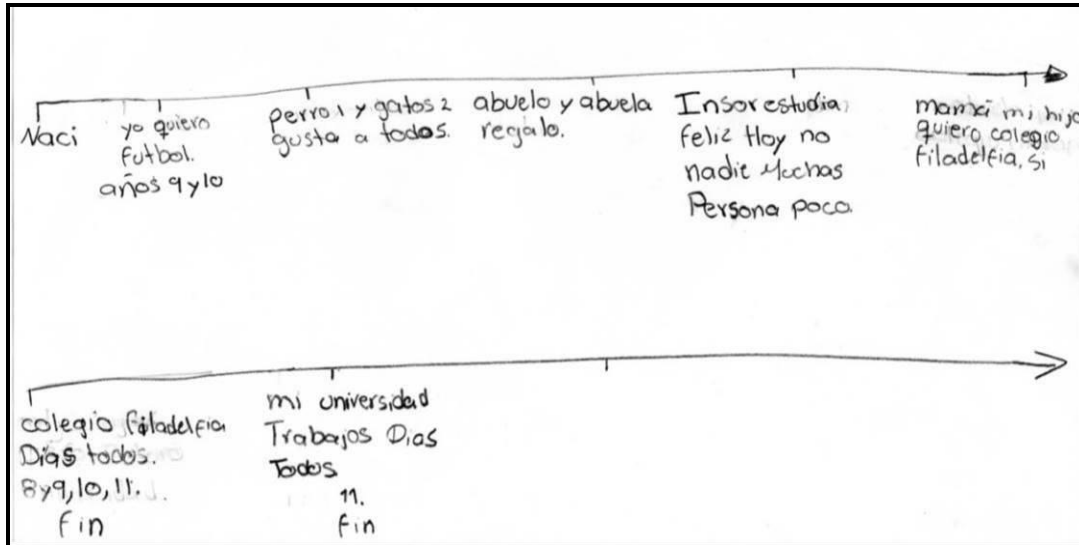 Naci
yo quiero
futbol.
años 9 y 10
perro 1 y gatos 2
gusta a todos.
abuelo y abuela
regalo.
Insor estudia
feliz Hoy no
nadie Muchas
Persona poca.
mamá mi hijo
quiero colegio
filadelfia, si
colegio filadelfia
Días todos.
8 y 9, 10, 11.
fin
mi universidad
Trabajos Dias
Todos
11.
fin